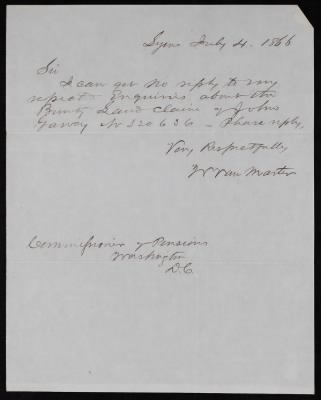 Lyons July 4. 1866
Sir
I can get no reply to my
repeated Enquiries about the
Bounty Land Claim of John
No 320636 - Please reply,
Very Respectfully
W Van Marter
Commissioner of Pensions
Washington
D.C.